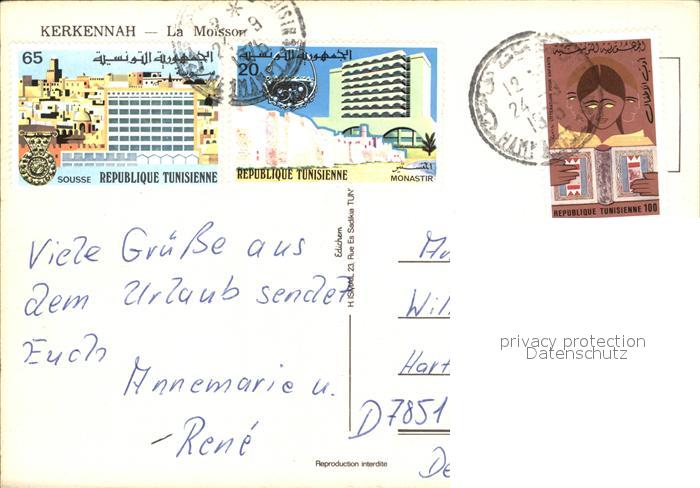 KERKENNAH — La Moisson
65
الجمهورية التونسية
سوسة
SOUSSE REPUBLIQUE TUNISIENNE
الجمهورية التونسية
20
REPUBLIQUE TUNISIENNE
المنستير
MONASTIR
12
24
الجمهورية التونسية
أدب الأطفال
REPUBLIQUE TUNISIENNE 100
Viele Grüße aus
dem Urlaub sendet
Euch
Annemarie u.
- René
Edichem
H. ISMAIL, 23, Rue Es Sadikia TUN
Wil
Hart
D7851
De
Reproduction interdite
privacy protection
Datenschutz